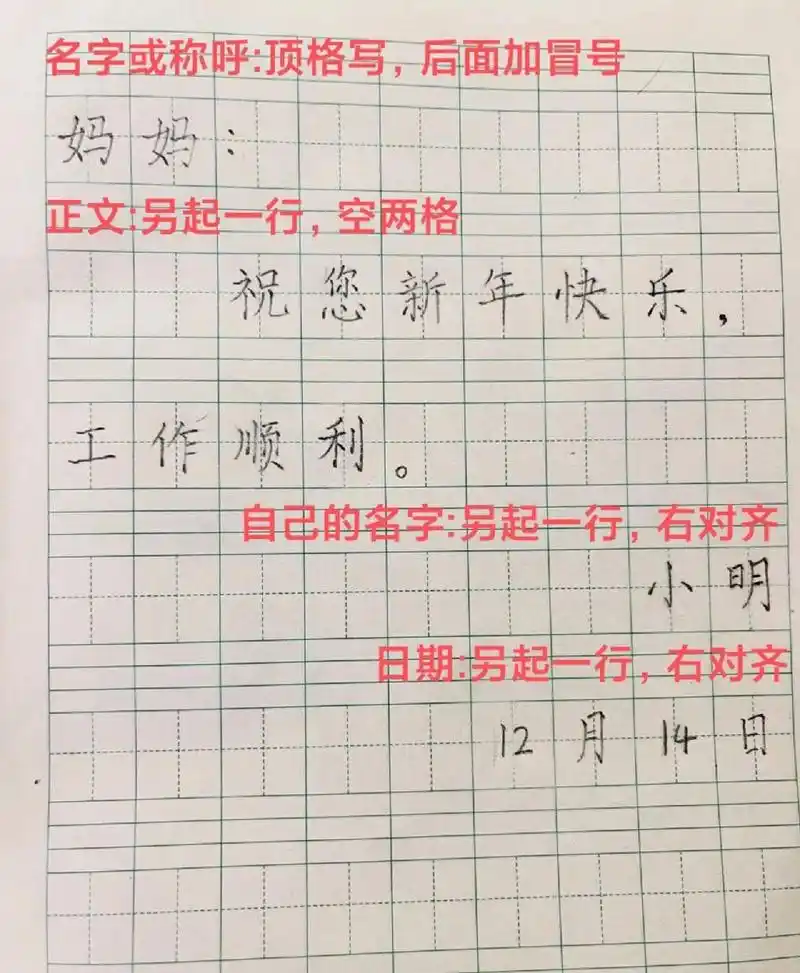 名字或称呼:顶格写，后面加冒号
妈妈：
正文:另起一行，空两格
祝您新年快乐，
工作顺利。
自己的名字:另起一行，右对齐
小明
日期:另起一行，右对齐
12月14日